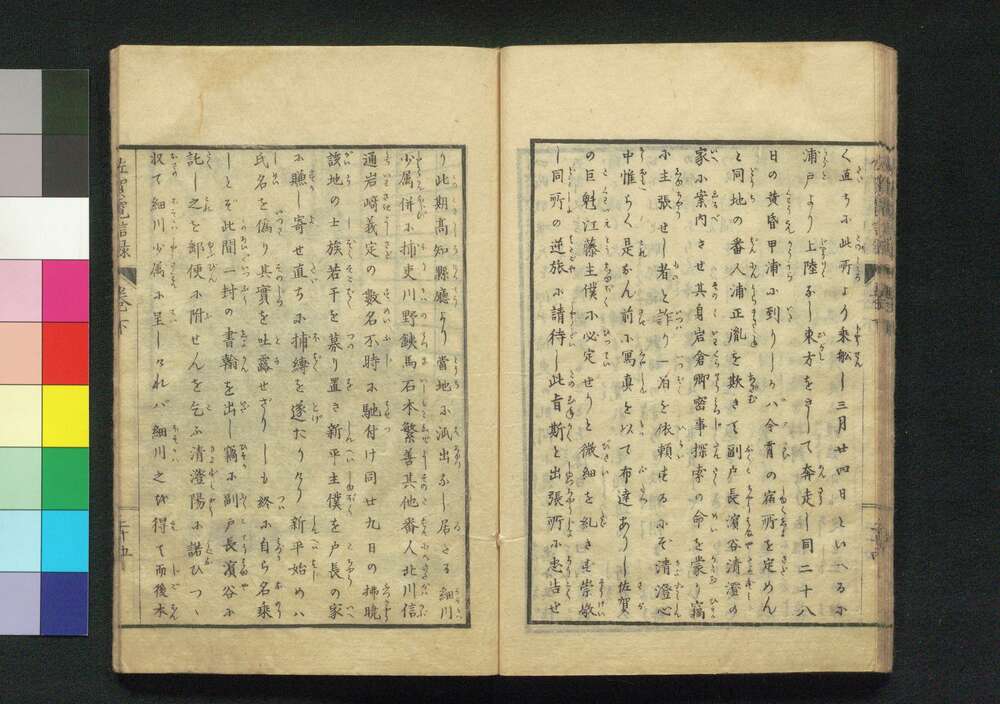 く直ちに此所より乗船し三月廿四日といへるに
浦戸より上陸なし東方をさして奔走し同二十八
日の黄昏甲浦に到りしかバ今宵の宿所を定めん
と同地の番人浦正胤を欺きて副戸長濱谷清澄の
家に案内させ其身岩倉卿密事探索の命を蒙り竊
に主張せし者と詐り一泊を依頼せるにぞ清澄心
中惟らく是なん前に寫真を以て布達ありし佐賀
の巨魁江藤主僕に必定せりと微細を糺さむ崇敬
し同所の逆旅に請待し此旨斯と出張所に告せ
り此期髙知縣廳より當地に派出なし居たる細川
少属併に捕吏川野鉄馬石本繁善其他番人北川信
通岩﨑義定の數名不時に馳付け同廿九日の拂暁
該地の士族若干を募り置き新平主僕を戸長の家
に賺し寄せ直ちに捕縛を遂たりけり新平始めハ
氏名を偽り其實を吐露せざりしも終に自ら名乗
しとぞ此間一封の書翰を出し竊に副戸長濱谷に
託し之を郵便に附せんを乞ふ清澄陽に諾ひつゝ
収て細川少属に呈しけれバ細川之を得て而後本
佐賀電信録
巻下
二十五